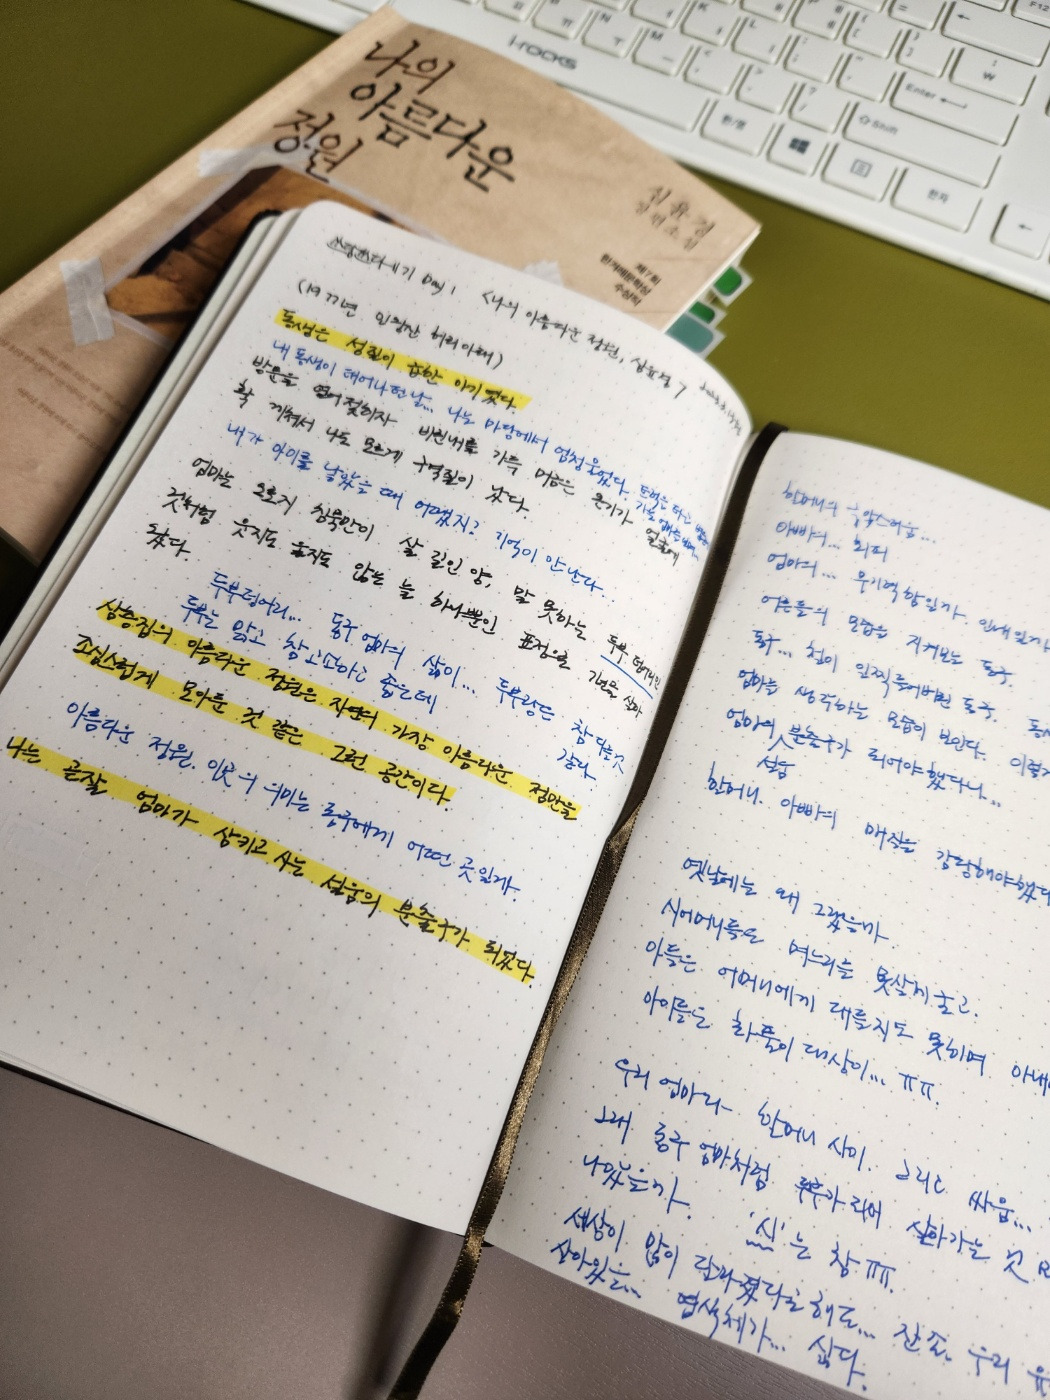 i-rocks
Enter
Shift
한/영
한자
F12
나의
아름다운
정원
심윤경
장편소설
제7회
한겨레문학상
수상작
Day 1 <나의 아름다운 정원, 심윤경>
(1977년 인왕산 허리아래)
동생은 성질이 급한 아기였다.
내 동생이 태어나던 날... 나는 마당에서 엄청 울었다.
방문을 열어젖히자 비린내를 가득 머금은 온기가 얼굴에
확 끼쳐서 나도 모르게 구역질이 났다.
내가 아이를 낳았을 때 어땠지? 기억이 안 난다..
엄마는 오로지 침묵만이 살 길인 양, 말 못하는 두부 덩어리인
것처럼 웃지도 울지도 않는 늘 하나뿐인 표정으로 기면을 살아
왔다.
두부덩어리... 동구 엄마의 삶이... 두부랑은 참 다른 것
두부는 맑고 참 고소하고 좋은데 같다.
삼층집의 아름다운 정원은 자연의 가장 아름다운 점만을
소심스럽게 모아둔 것 같은 그런 공간이다.
아름다운 정원. 이곳의 의미는 동구에게 어떤 곳일까.
나는 곧잘 엄마가 삼키고 사는 설움의 분출구가 되었다.
할머니의 고약스러움...
아빠의... 회피
엄마의... 무기력함인가. 인내인가
어른들의 모습을 지켜보는 동구.
동구... 철이 일찍 들어버린 동구.
엄마를 생각하는 모습이 보인다. 이렇게
엄마의 설움 분출구가 되어야 했다니...
할머니. 아빠의 매질을 감당해야 했다
옛날에는 왜 그랬을까
시어머니들은 며느리를 못살게 굴고.
아들은 어머니에게 대들지도 못하며 아내
아이들은 화풀이 대상이... ㅠㅠ.
우리 엄마랑 할머니 사이. 그리고 싸움...
그래 동구 엄마처럼 두부가 되어 살아가는 것
나았을까. '시'는 참 ㅠㅠ.
세상이 많이 달라졌다고 해도... 잔존. 우리
살아있는... 염색체가... 싫다.